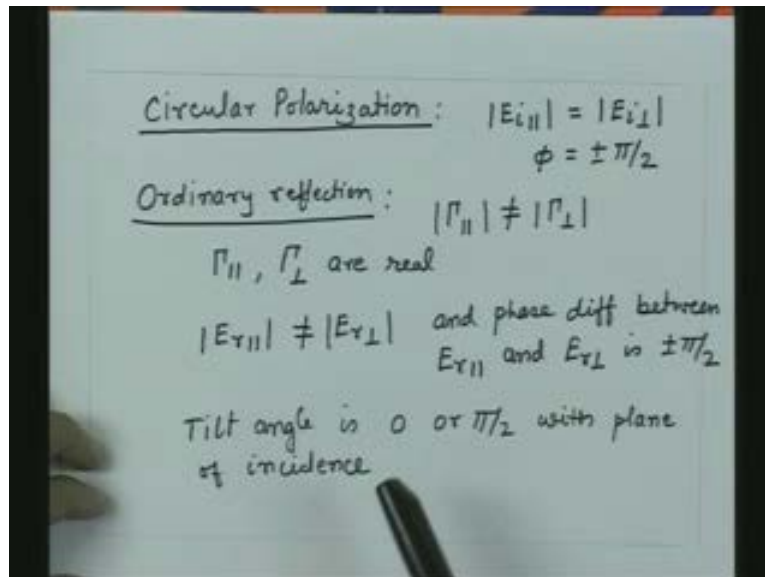 Circular Polarization : |Ei||| = |Ei⊥|
φ = ± π/2
Ordinary reflection : |Γ||| ≠ |Γ⊥|
Γ||, Γ⊥ are real
|Er||| ≠ |Er⊥| and phase diff between
Er|| and Er⊥ is ±π/2
Tilt angle is 0 or π/2 with plane
of incidence